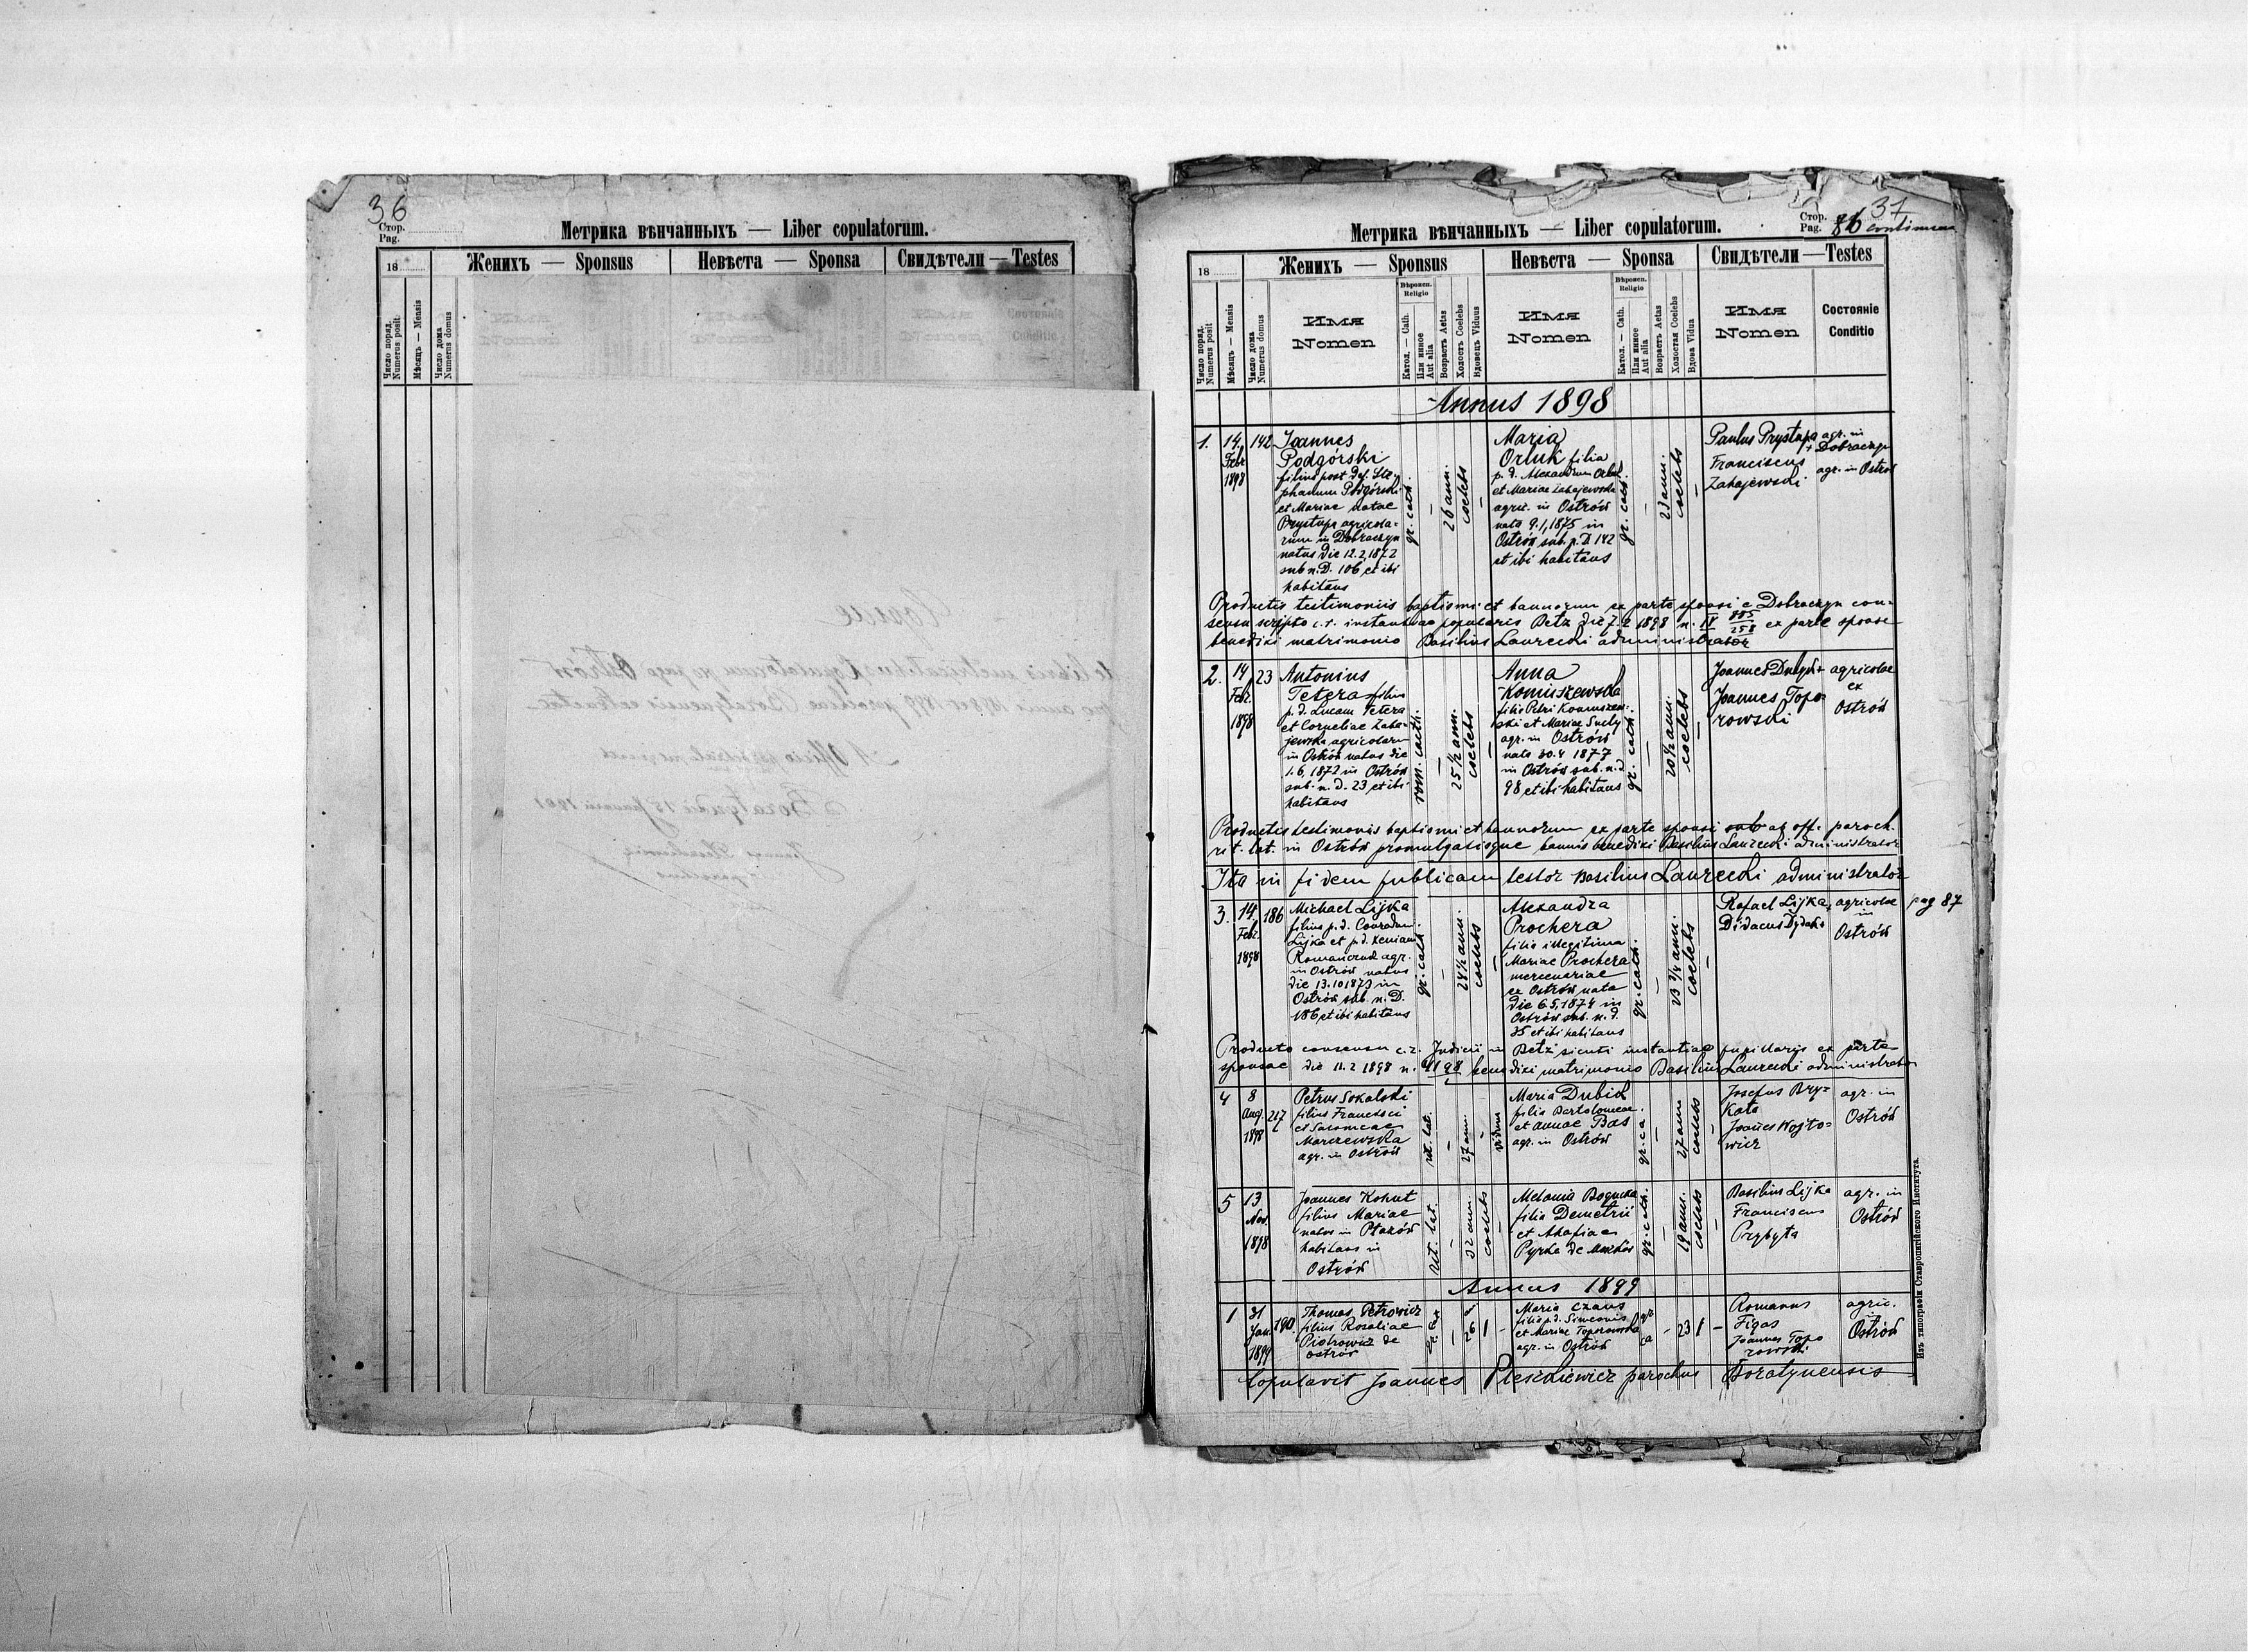 36
Стор.
Pag.
Метрика вѣнчанныхъ — Liber copulatorum.
18
Женихъ — Sponsus
Невѣста — Sponsa
Свидѣтели — Testes
Число поряд.
Numerus posit.
Мѣсяцъ — Mensis
Число дома
Numerus domus
37
Стор.
Pag. 86 continuus
Метрика вѣнчанныхъ — Liber copulatorum.
18
Женихъ — Sponsus
Невѣста — Sponsa
Свидѣтели — Testes
Число поряд.
Numerus posit
Мѣсяцъ — Mensis
Число дома
Numerus domus
Имя
Nomen
Вѣроисп.
Religio
Катол. — Cath.
Или иное
Aut alia
Возрастъ Aetas
Холостъ Coelebs
Вдовецъ Viduus
Имя
Nomen
Вѣроисп.
Religio
Катол. — Cath.
Или иное
Aut alia
Возрастъ Aetas
Холостая Coelebs
Вдова Vidua
Имя
Nomen
Состояніе
Conditio
Annus 1898
1.
14
Febr.
1898
142
Joannes
Podgórski
filius post def. Ste-
phanum Podgórski
et Mariae natae
Prystupa agricola-
rum in Dobraczyn
natus die 12.2,1872
sub n. D. 106 et ibi
habitans
gr. cath.
26 ann.
coelebs
Maria
Orluk filia
p. d. Alexandrum Orluk
et Mariae Zahajewska
agric. in Ostrów
nata 9.1,1875 in
Ostrów sub. n. D 142
et ibi habitans
gr. cath.
23 ann.
coelebs
Paulus Prystupa +
Franciscus
Zahajewski
agr. in
Dobraczyn
agr. in Ostrów
Productis testimoniis baptismi et bannorum ex parte sponsi e Dobraczyn con-
sensu scripto c. r. instantiae pupilaris Betz die 7.2 1898 n. IV 885/258 ex parte sponsae
benedixi matrimonio Basilius Laurecki administrator
2.
14
Febr.
1898
23
Antonius
Tetera filius
p. d. Lucam Tetera
et Corneliae Zaha-
jewska agricolarum
in Ostrów natus die
1.6,1872 in Ostrów
sub. n. d. 23 et ibi
habitans
rom. cath.
25 1/2 ann.
coelebs
Anna
Komiszewska
filia Petri Komiszew-
ski et Mariae
agr. in Ostrów
nata 30.4 1877
in Ostrów sub. n. d
98 et ibi habitans
gr. cath.
20 1/2 ann.
coelebs
Joannes +
Joannes Topo-
rowski
agricolae
ex
Ostrów
Productis testimoniis baptismi et bannorum ex parte sponsi sub ab off. paroch.
rit. lat. in Ostrów promulgatisque bannis benedixi Basilius Laurecki administrator
Ita in fidem publicam testor Basilius Laurecki administrator
3.
14
Febr.
1898
186
Michael Lijka
filius p. d. Conradum
Lijka et p. d. Xeniam
Romanczuk agr.
in Ostrów natus
die 13.10 1873 in
Ostrów sub. n. D.
186 et ibi habitans
gr. cath
24 1/2 ann.
coelebs
Alexandra
Prochera
filia illegitima
Mariae Prochera
mercenariae
ex Ostrów nata
die 6.5,1874 in
Ostrów sub. n. d.
35 et ibi habitans
gr. cath.
23 3/4 ann.
coelebs
Rafael Lijka +
Didacus
agricolae
in
Ostrów
pag 87
Producto consensu c. r. Judicii in Betz sicuti instantiae pupillaris ex parte
sponsae die 11.2 1898 benedixi matrimonio Basilius Laurecki administrator
4
8
Aug.
1898
217
Petrus Sokalski
filius Francisci
et Salomeae
Marczewska
agr. in Ostrów
rit. lat.
27 ann.
viduus
Maria Dubik
filia Bartolomeae
et Annae Bas
agr. in Ostrów
gr. ca.
27 ann
coelebs
Josefus Bry-
kata
Joannes Wojto-
wicz
agr. in
Ostrów
5
13
Nov.
1898
Joannes Kohut
filius Mariae
natus in
habitans in
Ostrów
rit. lat.
32 ann.
coelebs
Melania
filia Demetrii
et Ahafiae
Pyrka de
gr. cath.
19 ann.
coelebs
Basilius Lijka
Franciscus
Przybyta
agr. in
Ostrów
Annus 1899
1
31
Jan.
1899
190
Thomas Petrowicz
filius Rosaliae
Piotrowicz de
Ostrów
26
1
Maria Czaus
filia p. d. Simeonis
et Mariae Toporowska
agr. in Ostrów
gr
ca
23
1
Romanus
Figas
Joannes Topo
rowski
agric.
in
Ostrów
Copulavit Joannes Pleszkiewicz parochus Boratynensis
Изъ типографіи Ставропигійского Института.